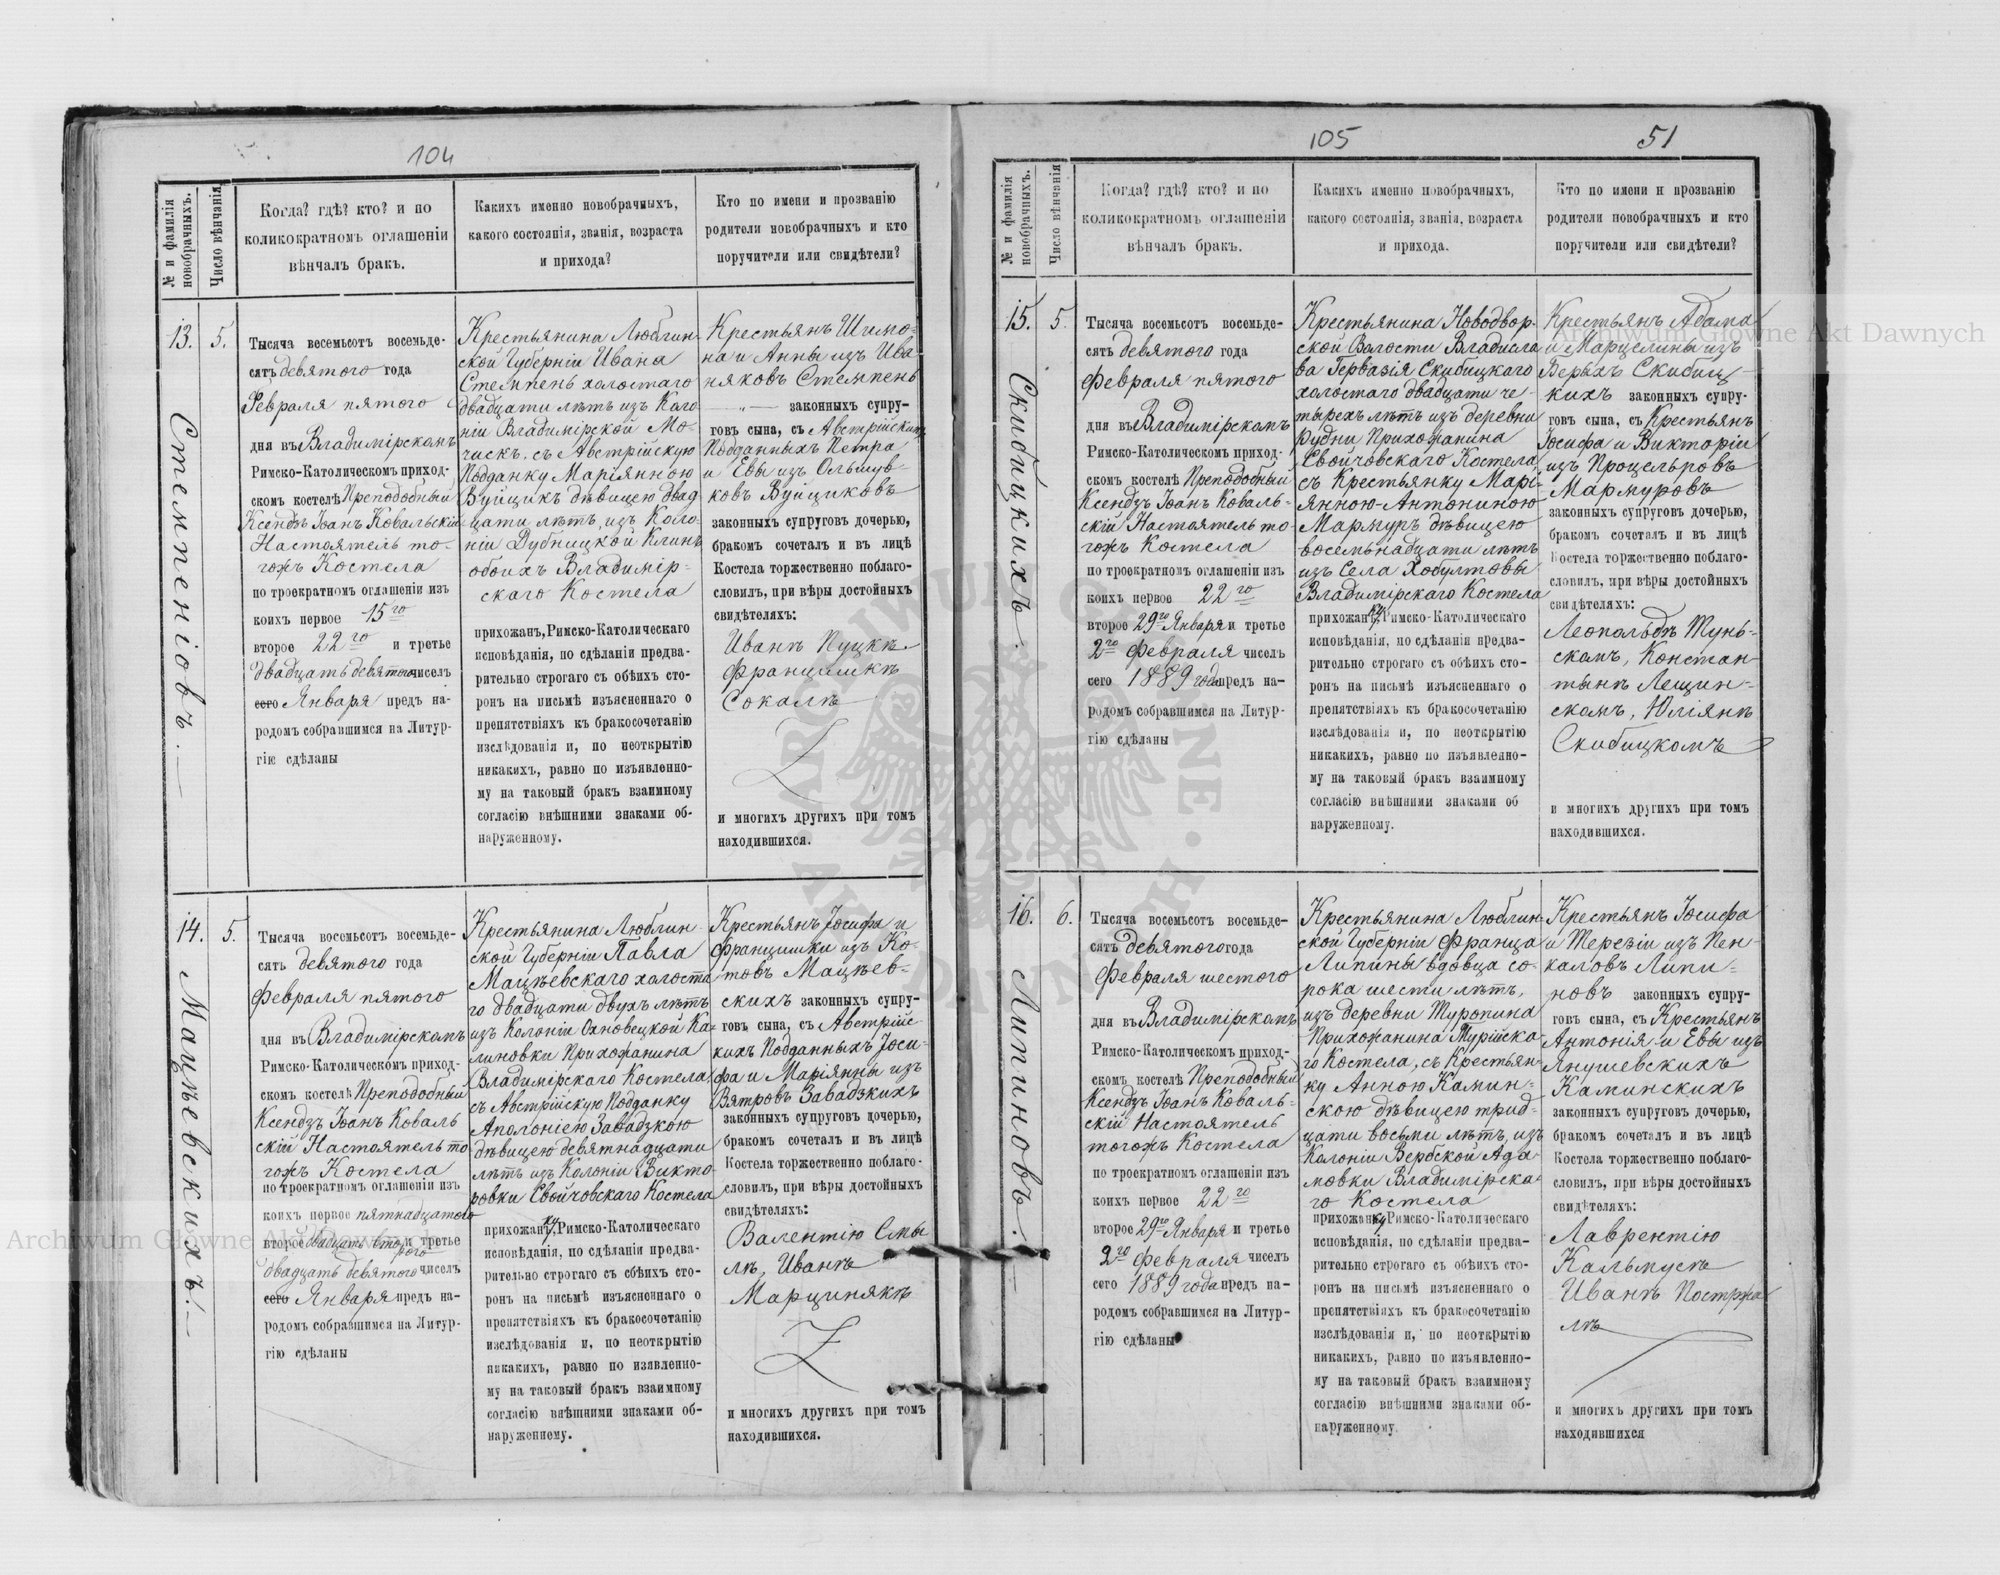 104
№ и фамилія новобрачныхъ.
Число вѣнчанія
Когда? гдѣ? кто? и по
коликократномъ оглашеніи
вѣнчалъ бракъ.
Какихъ именно новобрачныхъ,
какого состоянія, званія, возраста
и прихода?
Кто по имени и прозванію
родители новобрачныхъ и кто
поручители или свидѣтели?
13.
Стемпеніовъ.
5.
Тысяча весемьсотъ восемьде-
сять девятого года
Февраля пятого
дня въ Владимірскомъ
Римско-Католическомъ приход-
скомъ костелѣ Преподобный
Ксендзъ Іоанъ Ковальскій
Настоятель то-
гожъ Костела
по троекратномъ оглашеніи изъ
коихъ первое 15го
второе 22го и третье
двадцать девятого чиселъ
сего Января предъ на-
родомъ собравшимся на Литур-
гію сдѣланы
Крестьянина Люблин-
ской Губерніи Ивана
Стемпень холостаго
двадцати лѣтъ изъ Коло
ніи Владимірской Мо-
чискъ. съ Австрійскую
Подданку Маріянною
Вуйцикъ дѣвицею двад
цати лѣтъ, изъ Коло-
ніи Дубницкой Клинъ
обоихъ Владимір-
скаго Костела
прихожан, Римско-Католическаго
исповѣданія, по сдѣланіи предва-
рительно строгаго съ обѣихъ сто-
ронъ на письмѣ изъясненнаго о
препятствіяхъ къ бракосочетанію
изслѣдованія и, по неоткрытію
никакихъ, равно по изъявленно-
му на таковый бракъ взаимному
согласію внѣшними знаками об-
наруженному.
Крестьянъ Шимо-
на и Анны изъ Ива
няковъ Стемпень
законныхъ супру-
говъ сына, съ Австрійскихъ
Подданныхъ Петра
и Евы изъ Ольшув-
ковъ Вуйциковъ
законныхъ супруговъ дочерью,
бракомъ сочеталъ и въ лицѣ
Костела торжественно поблаго-
словилъ, при вѣры достойныхъ
свидѣтеляхъ:
Иванъ Пуцкъ
Францишкъ
Сокалъ
и многихъ другихъ при томъ
находившихся.
14.
Мацѣевскихъ.
5.
Тысяча восемьсотъ восемьде-
сять девятого года
Февраля пятого
дня въ Владимірскомъ
Римско-Католическомъ приход-
скомъ костелѣ Преподобный
Ксендзъ Іоанъ Коваль
скій Настоятель то
гожъ Костела
по троекратномъ оглашеніи изъ
коихъ первое пятнадцатого
второе двадцать второго и третье
двадцать девятого чиселъ
сего Января предъ на-
родомъ собравшимся на Литур-
гію сдѣланы
Крестьянина Люблин-
ской Губерніи Павла
Мацѣевскаго холоста
го двадцати двухъ лѣтъ
изъ Колоніи Охновецкой Ка-
линовки Прихожанина
Владимірскаго Костела,
съ Австрійскую Подданку
Аполоніею Завадзкою
дѣвицею девятнадцати
лѣтъ изъ Колоніи Викто-
ровки Свойчовскаго Костела
прихожанку, Римско-Католическаго
исповѣданія, по сдѣланіи предва-
рительно строгаго съ обѣихъ сто-
ронъ на письмѣ изъясненнаго о
препятствіяхъ къ бракосочетанію
изслѣдованія и, по неоткрытію
никакихъ, равно по изявленно-
му на таковый бракъ взаимному
согласію внѣшними знаками об-
наруженнему.
Крестьянъ Іосифа и
Францишки изъ Ко-
товъ Мацѣев-
скихъ законныхъ супру-
говъ сына, съ Австрійс-
кихъ Подданныхъ Іоси-
фа и Маріянны изъ
Вятровъ Завадзкихъ
законныхъ супруговъ дочерью,
бракомъ сочеталъ и въ лицѣ
Костела торжественно поблаго-
словилъ, при вѣры достойныхъ
свидѣтеляхъ:
Валентію Смы
лъ, Иванъ
Марцинякъ
и многихъ другихъ при томъ
находившихся.
105
51
№ и фамилія новобрачныхъ.
Число вѣнчанія
Когда? гдѣ? кто? и по
коликократномъ оглашеніи
вѣнчалъ бракъ.
Какихъ именно новобрачныхъ,
какого состоянія, званія, возраста
и прихода.
Кто по имени и прозванію
родители новобрачныхъ и кто
поручители или свидѣтели?
15.
Скибицкихъ.
5.
Тысяча восемьсотъ восемьде-
сять девятого года
Февраля пятого
дня въ Владимірскомъ
Римско-Католическомъ приход-
скомъ костелѣ Преподобный
Ксендзъ Іоанъ Коваль-
скій Настоятель то-
гожъ Костела
по троекратномъ оглашеніи изъ
коихъ первое 22го
второе 29го Января и третье
2го Февраля чиселъ
сего 1889 года предъ на-
родомъ собравшимся на Литур-
гію сдѣланы
Крестьянина Новодвор-
ской Волости Владисла
ва Гервазія Скибицкаго
холостаго двадцати че-
тырехъ лѣтъ изъ деревни
Рудни Прихожанина
Свойчовскаго Костела,
съ Крестьянку Марі-
янною-Антониною
Мармуръ дѣвицею
восемьнадцати лѣтъ
изъ Села Хобултовы
Владимірскаго Костела
прихожанку, Римско-Католическаго
исповѣданія, по сдѣланіи предва-
рительно строгаго съ обѣихъ сто-
ронъ на письмѣ изъясненнаго о
препятствіяхъ къ бракосочетанію
изслѣдованія и, по неоткрытію
никакихъ, равно по изъявленно-
му на таковый бракъ взаимному
согласію внѣшними знаками об
наруженному.
Крестьянъ Адама
и Марцелины изъ
Верыхъ Скибиц-
кихъ законныхъ супру-
говъ сына, съ Крестьянъ
Іосифа и Викторіи
изъ Процельровъ
Мармуровъ
законныхъ супруговъ дочерью,
бракомъ сочеталъ и въ лицѣ
Костела торжественно поблаго-
словилъ, при вѣры достойныхъ
свидѣтеляхъ:
Леопольдъ Тунь-
скомъ, Констан-
тынъ Лещин-
скомъ, Юліянъ
Скибицкомъ
и многихъ другихъ при томъ
находившихся.
16.
Липиновъ.
6.
Тысяча восемьсотъ восемьде-
сять девятого года
Февраля шестого
дня въ Владимірскомъ
Римско-Католическомъ приход-
скомъ костелѣ Преподобный
Ксендзъ Іоанъ Коваль-
скій Настоятель
тогожъ Костела
по троекратномъ оглашеніи изъ
коихъ первое 22го
второе 29го Января и третье
2го Февраля чиселъ
сего 1889 года предъ на-
родомъ собравшимся на Литур-
гію сдѣланы
Крестьянина Люблин-
ской Губерніи Франца
Липины вдовца со-
рока шести лѣтъ,
изъ деревни Туропина
Прихожанина Турійска
го Костела, съ Крестьян-
ку Анною Камин-
скою дѣвицею трид-
цати восьми лѣтъ, изъ
Колоніи Вербской Ада-
мовки Владимірска-
го Костела
прихожанку Римско-Католическаго
исповѣданія, по сдѣланіи предва-
рительно строгаго съ обѣихъ сто-
ронъ на письмѣ изъясненнаго о
препятствіяхъ къ бракосочетанію
изслѣдованія и, по неоткрытію
никакихъ, равно по изъявленно-
му на таковый бракъ взаимному
согласію внѣшними знаками об-
наруженному.
Крестьянъ Іосифа
и Терезіи изъ Пен-
каловъ Липи-
новъ законныхъ супру-
говъ сына, съ Крестьянъ
Антонія и Евы изъ
Янушевскихъ
Каминскихъ
законныхъ супруговъ дочерью,
бракомъ сочеталъ и въ лицѣ
Костела торжественно поблаго-
словилъ, при вѣры достойныхъ
свидѣтеляхъ:
Лаврентію
Кальмукъ
Иванъ Постржа
лъ
и многихъ другихъ при томъ
находившихся
Archiwum Główne Akt Dawnych
Archiwum Główne Akt Dawnych